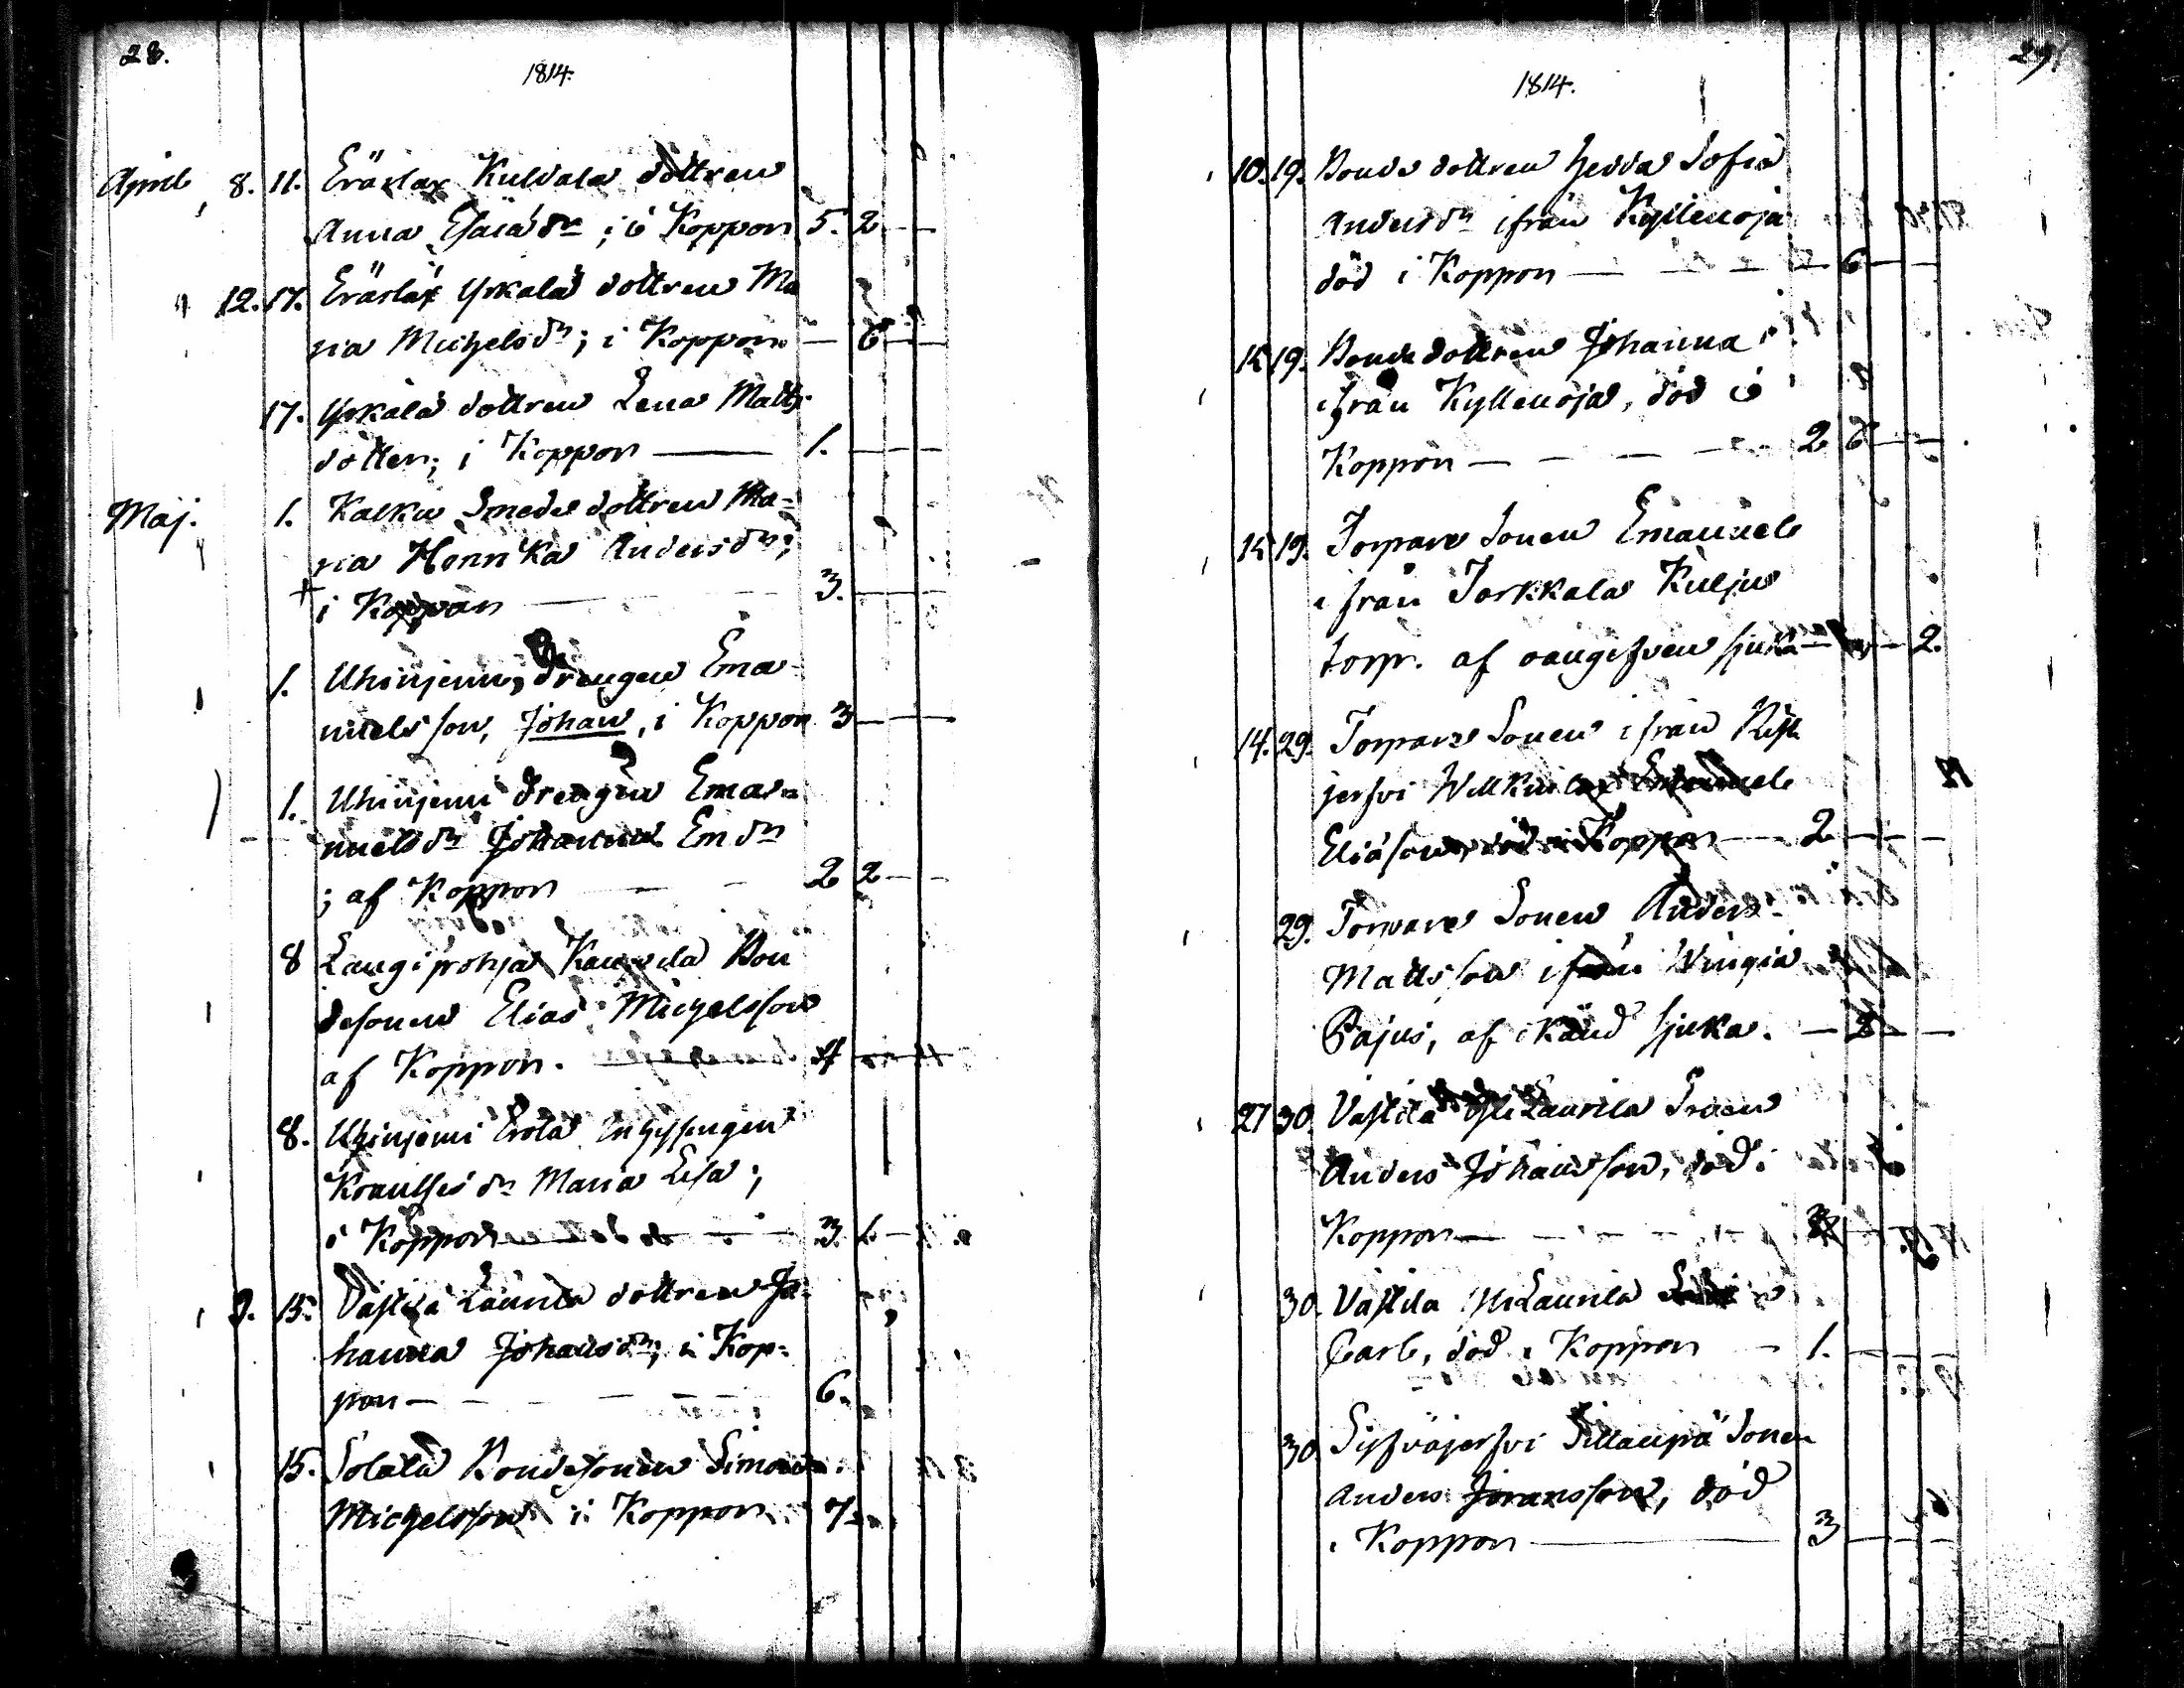 28.
1814.
April 8. 11. Eräslax Kuldala dottren
Anna Esaiæ dr; i Koppon 5. 2 — —
12. 17. Eräslax Yrkälä dottren Ma
ria Michels dr; i Koppon — 6 — —
17. Yrkälä dottren Lena Matts
dotter; i Koppon — 1. — — —
Maj. 1. Kalku Smeds dottren Ma=
ria Henrika Anders dr;
i Koppon — 3. — — —
1. Uhinjemi, drengen Ema
nuels son, Johan, i Koppon 3 — — —
1. Uhinjemi drengen Ema=
nuels dr Johanna Em dr
; af Koppon — — 2 2 — —
8 Langipohja Kaurila Bon
desonen Elias Michelsson
af Koppon. — 4 — — —
8. Uhinjemi Erola
dr Maria Lisa;
i Koppon — — 3. 1. —
9. 15. Vastila Laurila dottren Jo=
hanna Johans dr; i Kop=
pon — — — — 6.
15. Solala Bondesonen Simon
Michelsson i Koppon 7.
29
1814.
10. 19. Bonde dottren Hedda Sofia
Anders dr ifrån Kyllenoja
död i Koppon — — — — 6 — —
14 19. Bonde dottren Johanna
ifrån Kyllenoja, död i
Koppon — — — — 2 6 — —
14 19. Torpare Sonen Emanuel
ifrån Jorkkala Kuljus
torp. af oangifven sjuka — — — 2.
14. 29. Torpare Sonen ifrån
jerfvi
Eliasson, död i Koppon — 2 — — —
29. Torpare Sonen Anders
Mattsson ifrån Wingiä
Pajus, af okänd sjuka. — 8 — —
27 30. Vastila Yli Laurila Sonen
Anders Johansson, död i
Koppon — — — —
30. Vastila Yli Laurila
Carl, död i Koppon — 1. — — —
30. Syfväjerfvi Sillanpä Sonen
Anders Jöransson, död
i Koppon — 3 — — —